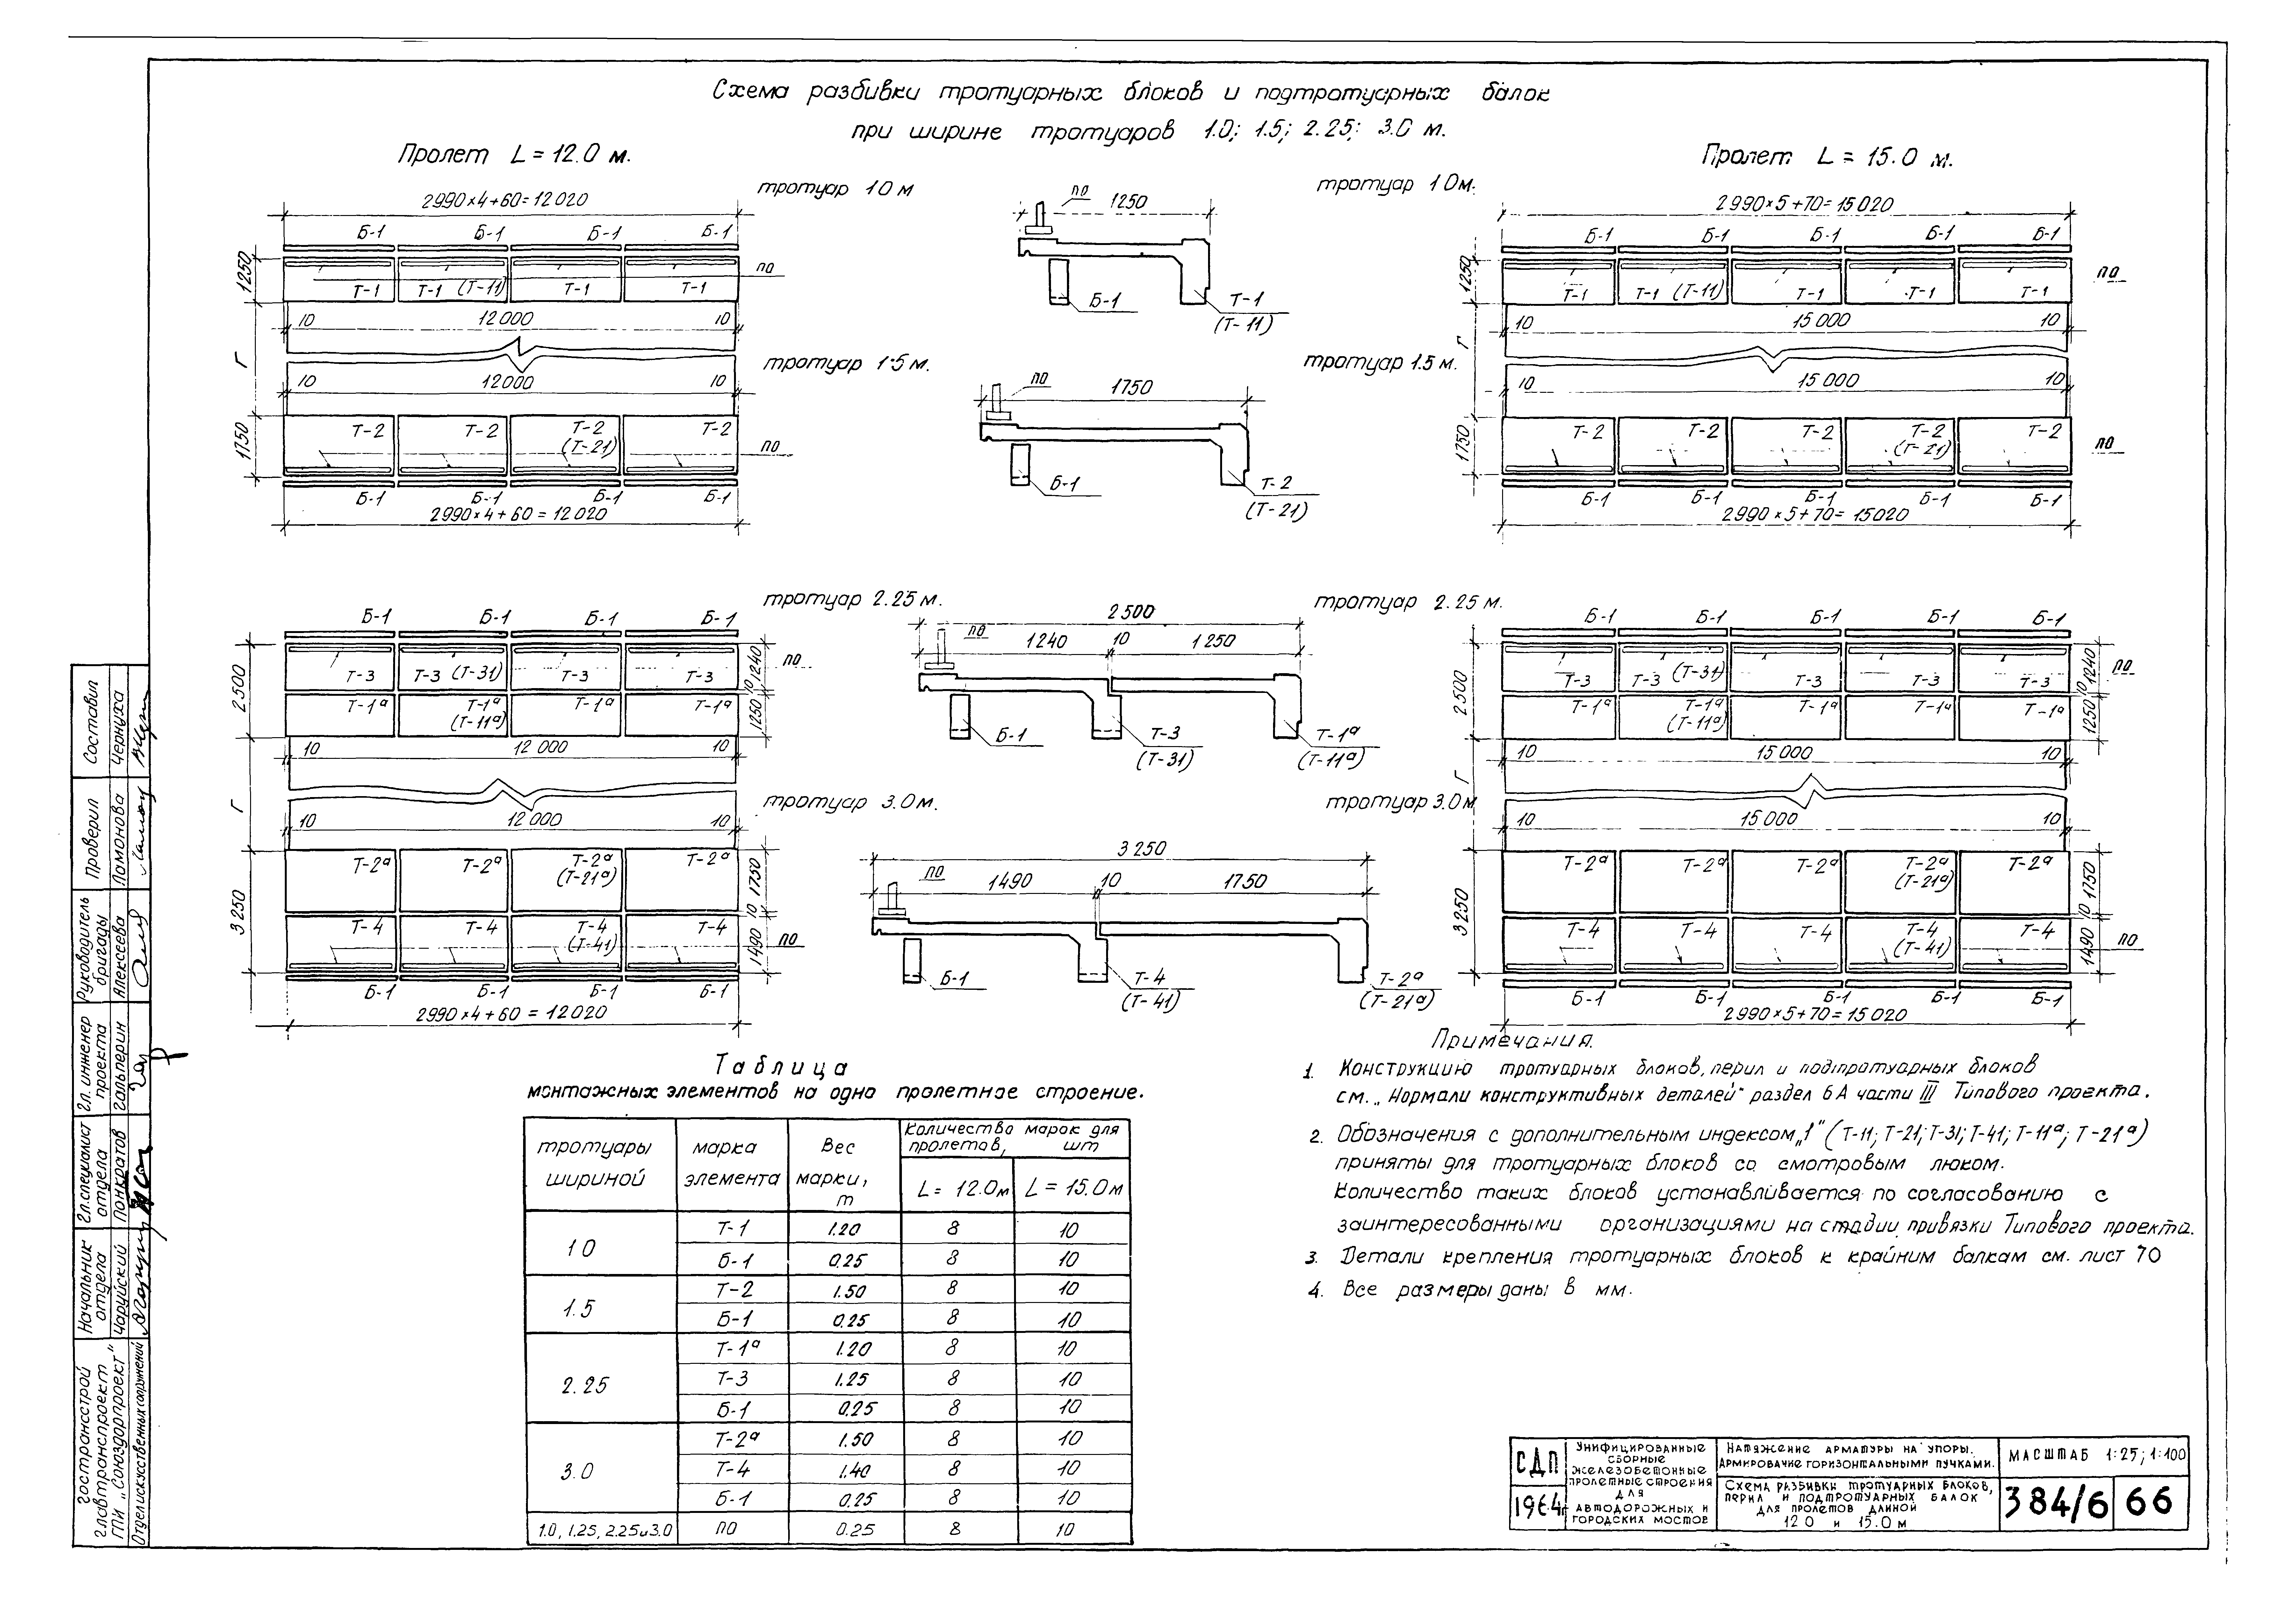 Схема разбивки тротуарных блоков и подтротуарных балок
при ширине тротуаров 1.0; 1.5; 2.25; 3.0 м.
Пролет L = 12.0 м.
2990×4+60=12020
Б-1 Б-1 Б-1 Б-1
1250
Т-1 Т-1 (Т-11) Т-1 Т-1
ПО
10 12000 10
Г
10 12000 10
1750
Т-2 Т-2 Т-2 Т-2
(Т-21)
ПО
Б-1 Б-1 Б-1 Б-1
2990×4+60=12020
тротуар 10 м
ПО
1250
Б-1
Т-1
(Т-11)
тротуар 1.5 м.
ПО
1750
Б-1
Т-2
(Т-21)
Пролет L = 15.0 м.
тротуар 1 0м.
2990×5+70=15020
Б-1 Б-1 Б-1 Б-1 Б-1
1250
Т-1 Т-1 (Т-11) Т-1 Т-1 Т-1
ПО
10 15000 10
Г
тротуар 1.5 м.
10 15000 10
1750
Т-2 Т-2 Т-2 Т-2 Т-2
(Т-21)
ПО
Б-1 Б-1 Б-1 Б-1 Б-1
2990×5+70=15020
Б-1 Б-1 Б-1 Б-1
2500
Т-3 Т-3 (Т-31) Т-3 Т-3
Т-1а Т-1а Т-1а Т-1а
(Т-11а)
1250 10 1240
ПО
10 12000 10
Г
10 12000 10
3250
Т-2а Т-2а Т-2а Т-2а
(Т-21а)
Т-4 Т-4 Т-4 Т-4
(Т-41)
1490 10 1750
ПО
Б-1 Б-1 Б-1 Б-1
2990×4+60=12020
тротуар 2.25 м.
2500
ПО
1240 10 1250
Б-1
Т-3
(Т-31)
Т-1а
(Т-11а)
тротуар 3.0 м.
3250
ПО
1490 10 1750
Б-1
Т-4
(Т-41)
Т-2а
(Т-21а)
тротуар 2.25 м.
Б-1 Б-1 Б-1 Б-1 Б-1
2500
Т-3 Т-3 (Т-31) Т-3 Т-3 Т-3
Т-1а Т-1а Т-1а Т-1а Т-1а
(Т-11а)
1250 10 1240
ПО
10 15000 10
Г
тротуар 3.0 м
10 15000 10
3250
Т-2а Т-2а Т-2а Т-2а Т-2а
(Т-21а)
Т-4 Т-4 Т-4 Т-4 Т-4
(Т-41)
1490 10 1750
ПО
Б-1 Б-1 Б-1 Б-1 Б-1
2990×5+70=15020
Таблица
монтажных элементов на одно пролетное строение.
тротуары шириной | марка элемента | Вес марки, т | Количество марок для пролетов, шт
L = 12.0м | L = 15.0м
10 | Т-1 | 1.20 | 8 | 10
Б-1 | 0.25 | 8 | 10
1.5 | Т-2 | 1.50 | 8 | 10
Б-1 | 0.25 | 8 | 10
2.25 | Т-1а | 1.20 | 8 | 10
Т-3 | 1.25 | 8 | 10
Б-1 | 0.25 | 8 | 10
3.0 | Т-2а | 1.50 | 8 | 10
Т-4 | 1.40 | 8 | 10
Б-1 | 0.25 | 8 | 10
1.0, 1.25, 2.25и3.0 | ПО | 0.25 | 8 | 10
Примечания.
1. Конструкцию тротуарных блоков, перил и подпротуарных блоков
см. „Нормали конструктивных деталей" раздел 6А части III Типового проекта.
2. Обозначения с дополнительным индексом „1" (Т-11; Т-21; Т-31; Т-41; Т-11а; Т-21а)
приняты для тротуарных блоков со смотровым люком.
Количество таких блоков устанавливается по согласованию с
заинтересованными организациями на стадии привязки Типового проекта.
3. Детали крепления тротуарных блоков к крайним балкам см. лист 70
4. Все размеры даны в мм.
СДП
1964г
Унифицированные
сборные
железобетонные
пролетные строения
для
автодорожных и
городских мостов
Натяжение арматуры на упоры.
Армирование горизонтальными пучками.
Схема разбивки тротуарных блоков,
перил и подтротуарных балок
для пролетов длиной
12 0 и 15.0 м
Масштаб 1:25; 1:100
384/6 66
Составил Чернуха
Проверил Ламонова
Руководитель бригады Алексеева
Гл. инженер проекта Гальперин
Гл. специалист отдела Понкратов
Начальник отдела Чаруйский
Гострансстрой
Главтранспроект
ГПИ „Союздорпроект"
Отдел искусственных сооружений